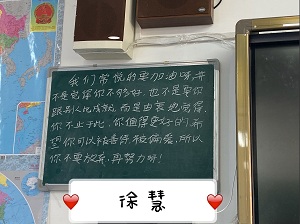 我们常说的要加油呀,并
不是觉得你不够好,也不是要你
跟别人比成就,而是由衷地觉得,
你不止于此,你值得更好的,希
望你可以被善待,被偏爱,所以
你不要放弃,再努力呀!
徐慧